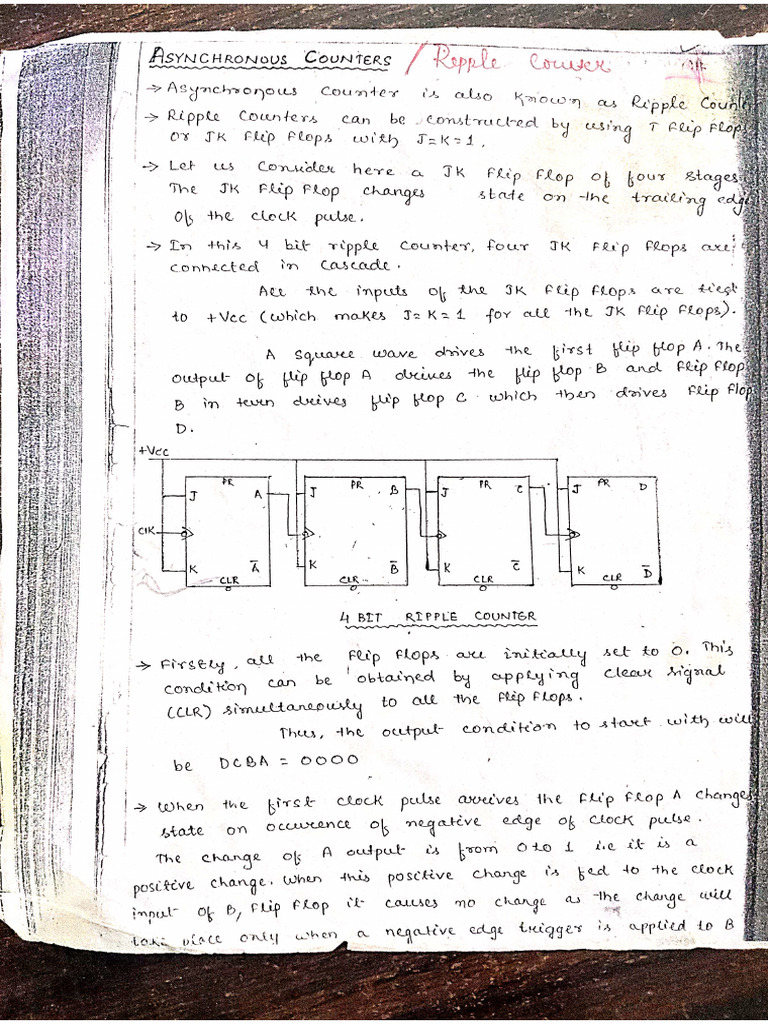 ASYNCHRONOUS COUNTERS / Ripple Couner
→ Asynchronous Counter is also known as Ripple Counter
→ Ripple Counters can be constructed by using T Flip Flops
or JK Flip Flops with J=K=1.
→ Let us Consider here a JK Flip Flop of four stages.
The JK Flip Flop changes state on the trailing edge
of the clock pulse.
→ In this 4 bit ripple counter, four JK Flip Flops are
connected in cascade.
All the inputs of the JK Flip Flops are
to +Vcc (which makes J=K=1 for all the JK Flip Flops).
A square wave drives the first flip flop A. The
output of flip flop A drives the flip flop B and flip flop
B in turn drives flip flop C which then drives Flip Flop
D.
+Vcc
J PR A J PR B J PR C J PR D
CLK
K CLR A̅ K CLR B̅ K CLR C̅ K CLR D̅
4 BIT RIPPLE COUNTER
→ Firstly, all the Flip Flops are initially set to 0. This
condition can be obtained by applying clear signal
(CLR) simultaneously to all the Flip Flops.
Thus, the output condition to start with will
be DCBA = 0000
→ When the first clock pulse arrives the Flip Flop A changes
state on occurence of negative edge of clock pulse.
The change of A output is from 0 to 1 i.e it is a
positive change. When this positive change is fed to the clock
input of B, Flip Flop it causes no change as the change will
take place only when a negative edge trigger is applied to B